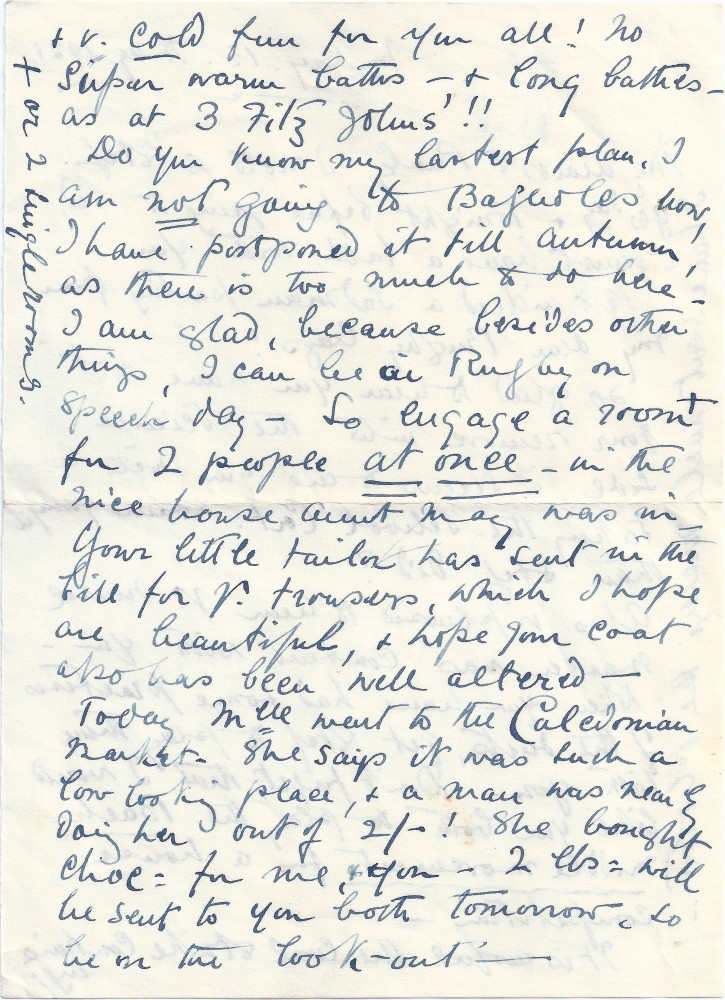 + v. cold for you all! No
super warm baths – + long bathes –
as at 3 Fitz Johns'!!
Do you know my lastest plan, I
am not going to Bagnoles now,
I have postponed it till autumn!
as there is too much to do here –
I am glad, because besides other
things, I can be in Rugby on
speech day – So engage a room +
for 2 people at once – in the
nice house aunt May was in –
Your little tailor has sent in the
bill for yr. trousers, which I hope
are beautiful, + hope your coat
also has been well altered –
Today Mlle went to the Caledonian
Market – She says it was such a
low looking place, + a man was nearly
doing her out of 2/-! She bought
choc = for me, + you – 2 lbs = will
be sent to you both tomorrow, so
be on the look-out –
+ or 2 single rooms.